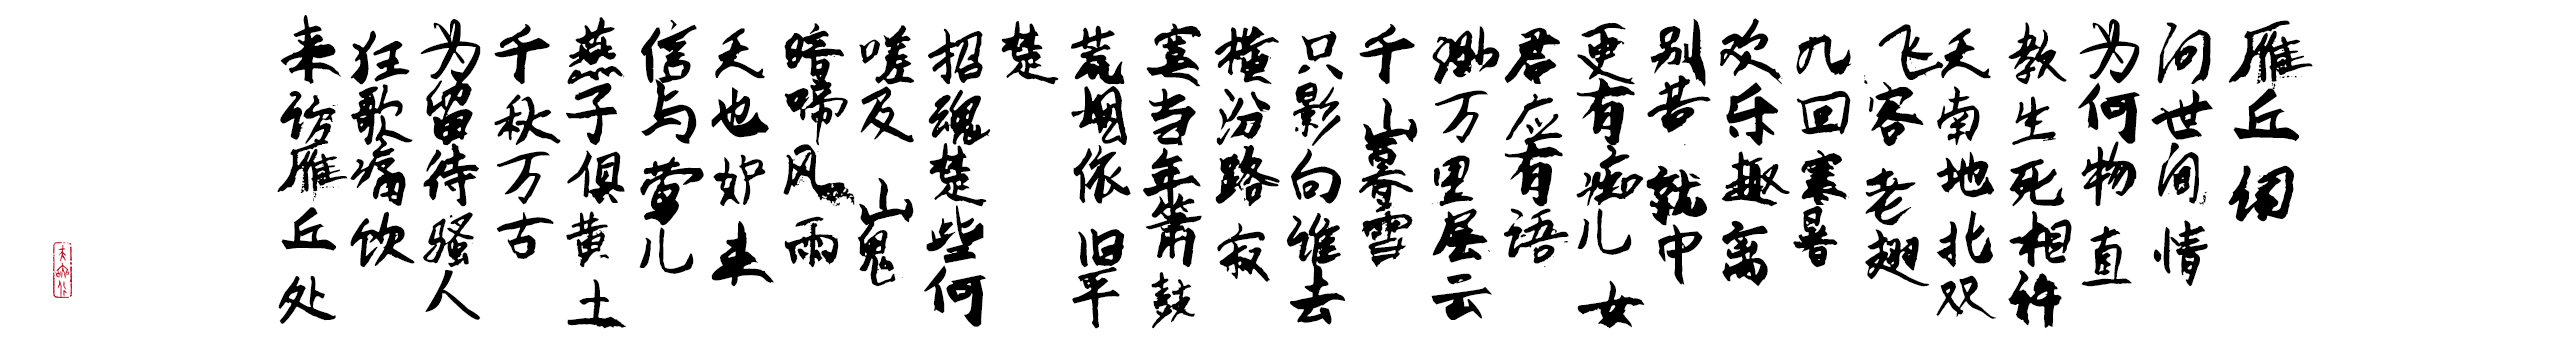 雁丘词
问世间情
为何物直
教生死相许
天南地北双
飞客老翅
几回寒暑
欢乐趣离
别苦就中
更有痴儿女
君应有语
渺万里层云
千山暮雪
只影向谁去
横汾路寂
寞当年箫鼓
荒烟依旧平
楚
招魂楚些何
嗟及山鬼
暗啼风雨
天也妒未
信与莺儿
燕子俱黄土
千秋万古
为留待骚人
狂歌痛饮
来访雁丘处